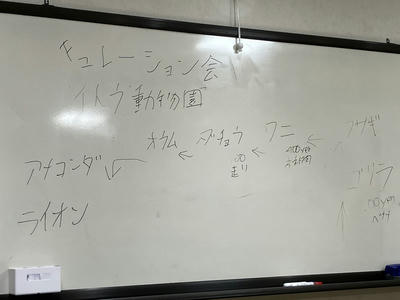 キュレーション会
イトウ動物園
ウサギ
ワニ
ダチョウ
オウム
アナコンダ
ゴリラ
ライオン
走り